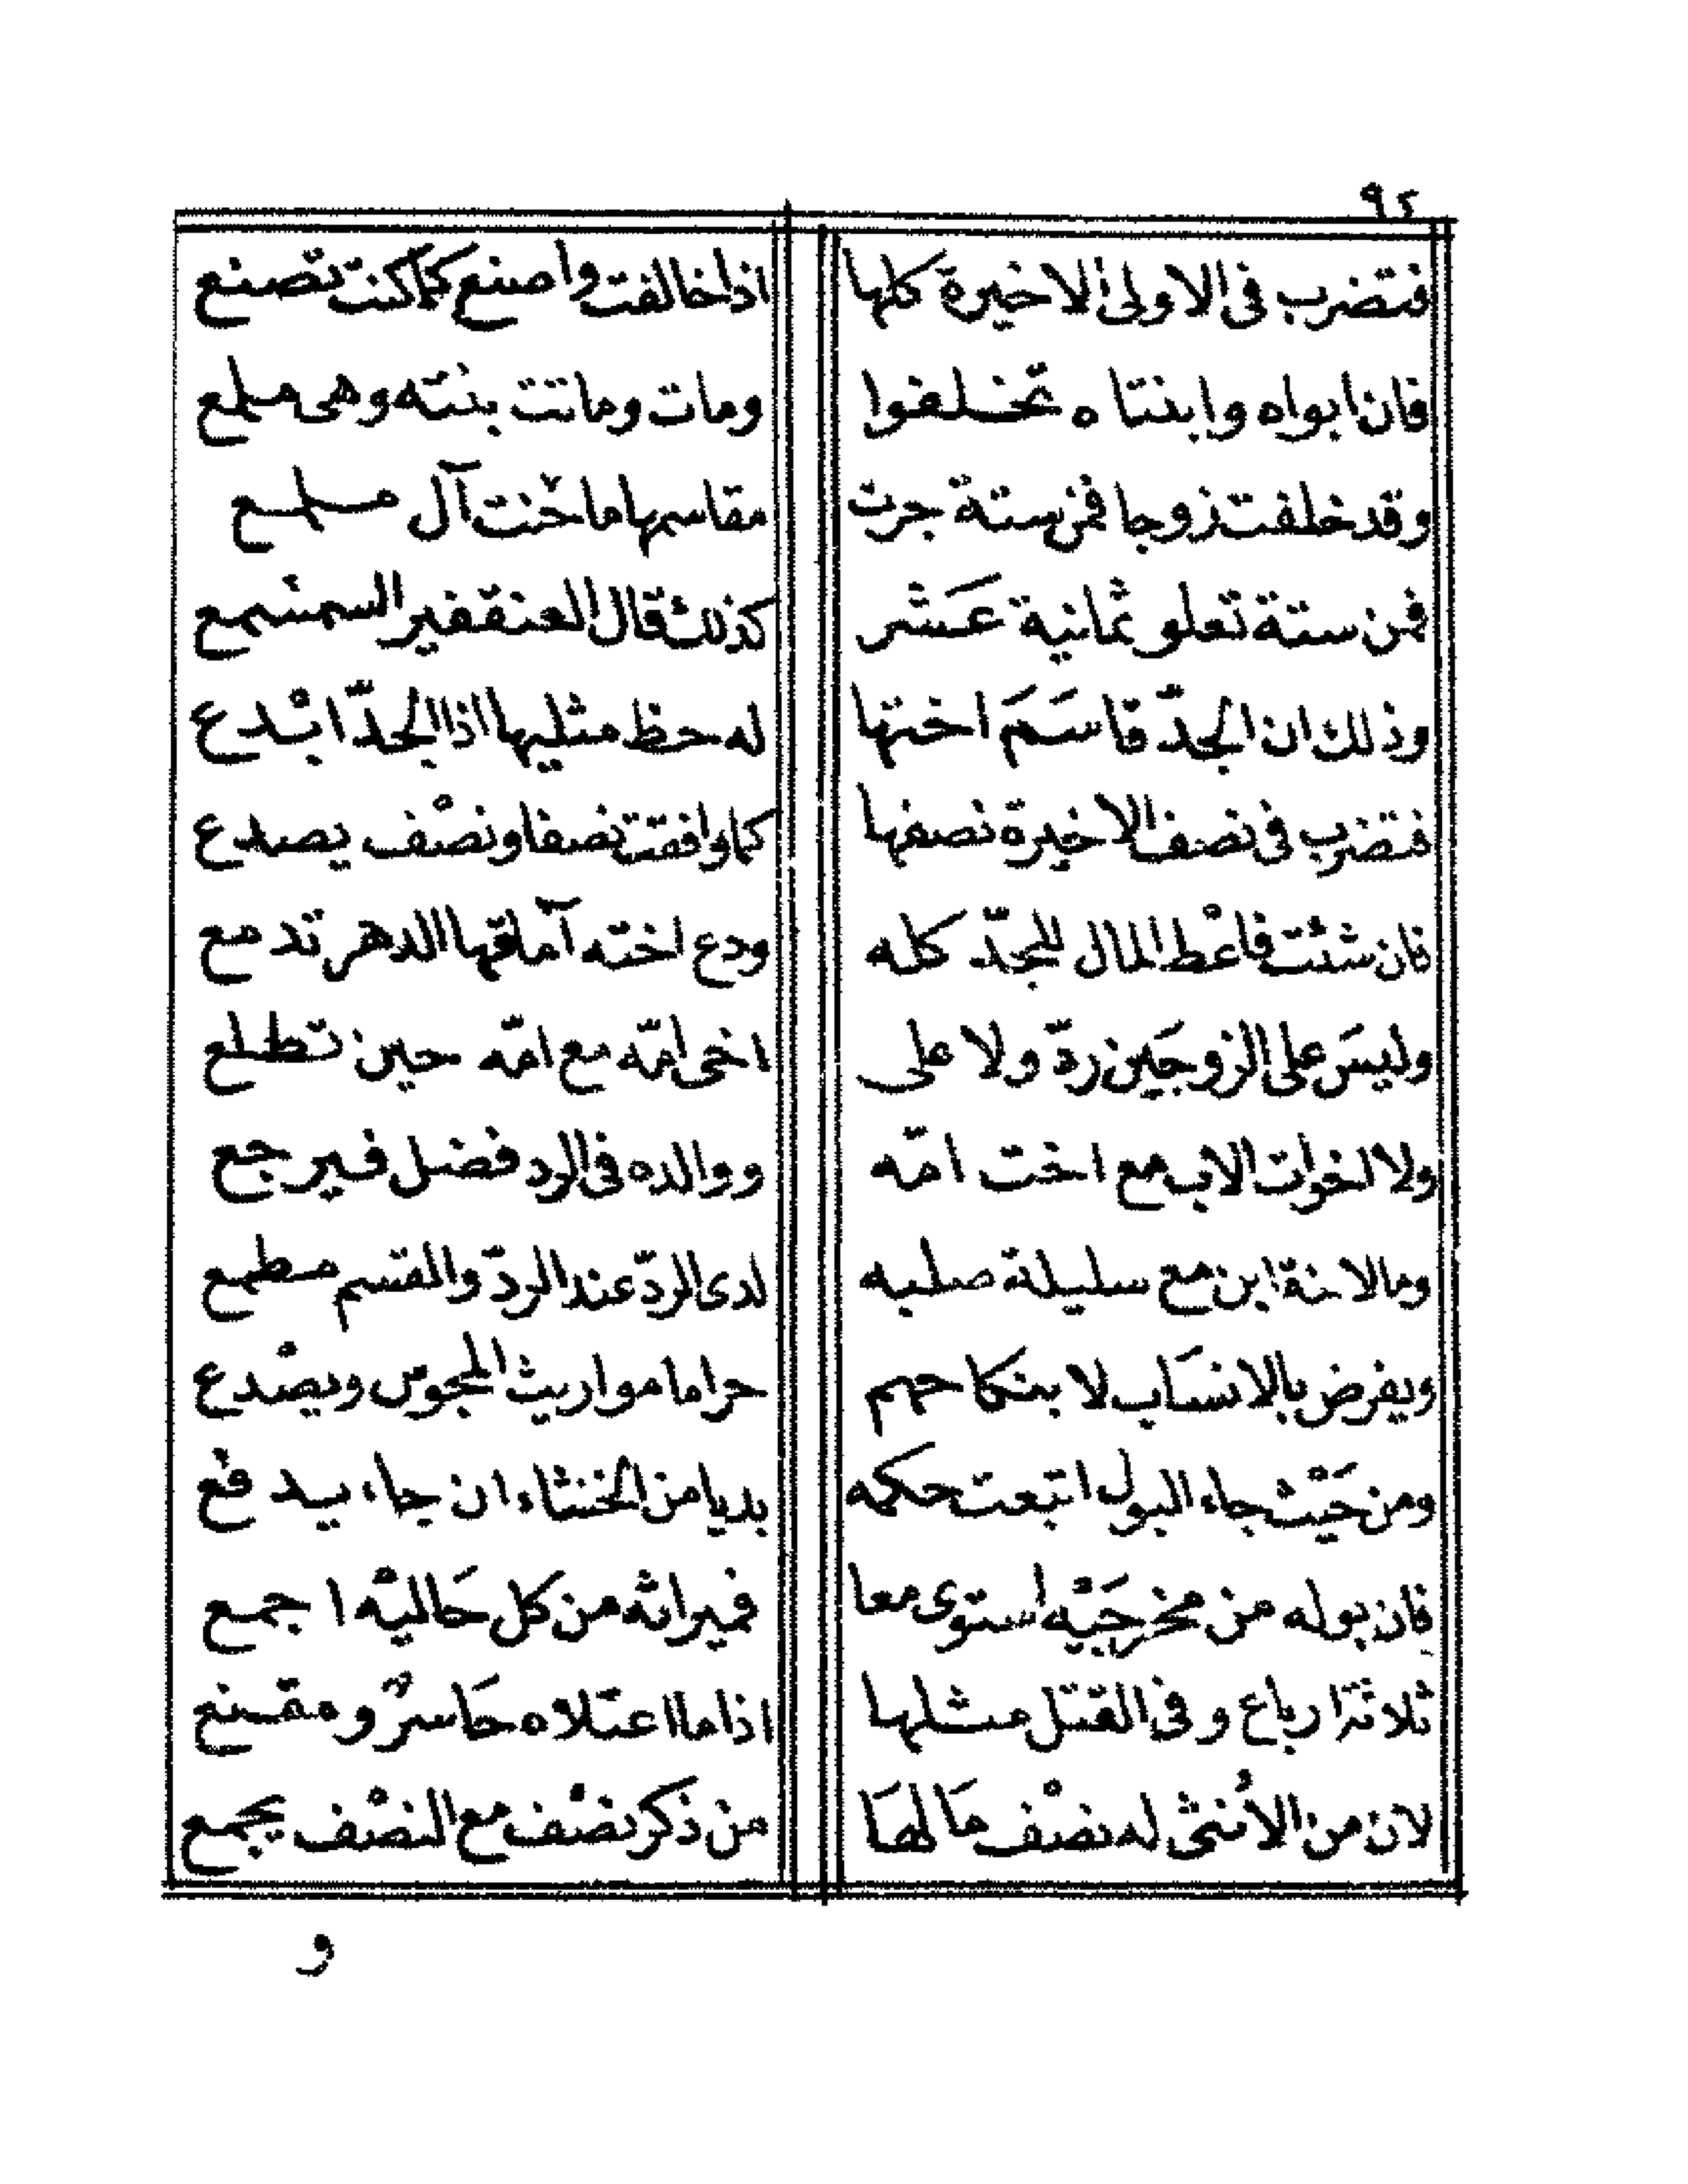 ٩٢
فتضرب فى الاولى الاخيرة كلها اذا خالفت واصنع كما كنت تصنع
فان ابواه وابنتاه تخلفوا ومات وماتت بنته وهى مبلع
وقد خلفت زوجا فمن ستة جرت مقاسمها ما خنت آل مسلمع
فمن ستة تعلو ثمانية عَشر كذلك قال العنقفير السمسمع
وذلك ان الجدّ قاسَمَ اختها له حظ مثليها اذا الجدّ ابْدع
فتضرب فى نصف الاخيرة نصفها كما وافقت نصفا ونصْف يصدع
فان شئت فاعْط المال للجدّ كله ودع اخته آماقها الدهر تدمع
وليسَ على الزوجَين ردّ ولا على اخى امّه مع امّه حين تطلع
ولا لخوات الاب مع اخت امّه ووالده فى الرد فضل فيرجع
وما لابنة ابن مع سليلة صلبه لدى الردّ عند الردّ والقسم مطمع
ويفرض بالانسَاب لا بنكاحهم حراما مواريث المجوس ويصْدع
ومن حَيْث جاء البول اتبعت حكمه بديا من الخنثاء ان جاء يدفع
فان بوله من مخرجَيْه استوى معا فميراثه من كل حَاليْه اجمع
ثلاثة ارباع وفى القتل مثلها اذا ما اعتلاه حَاسرٌ ومقنع
لان من الاُنثى له نصْف مَا لهَا من ذكر نصْف مع النصْف يجمع
و